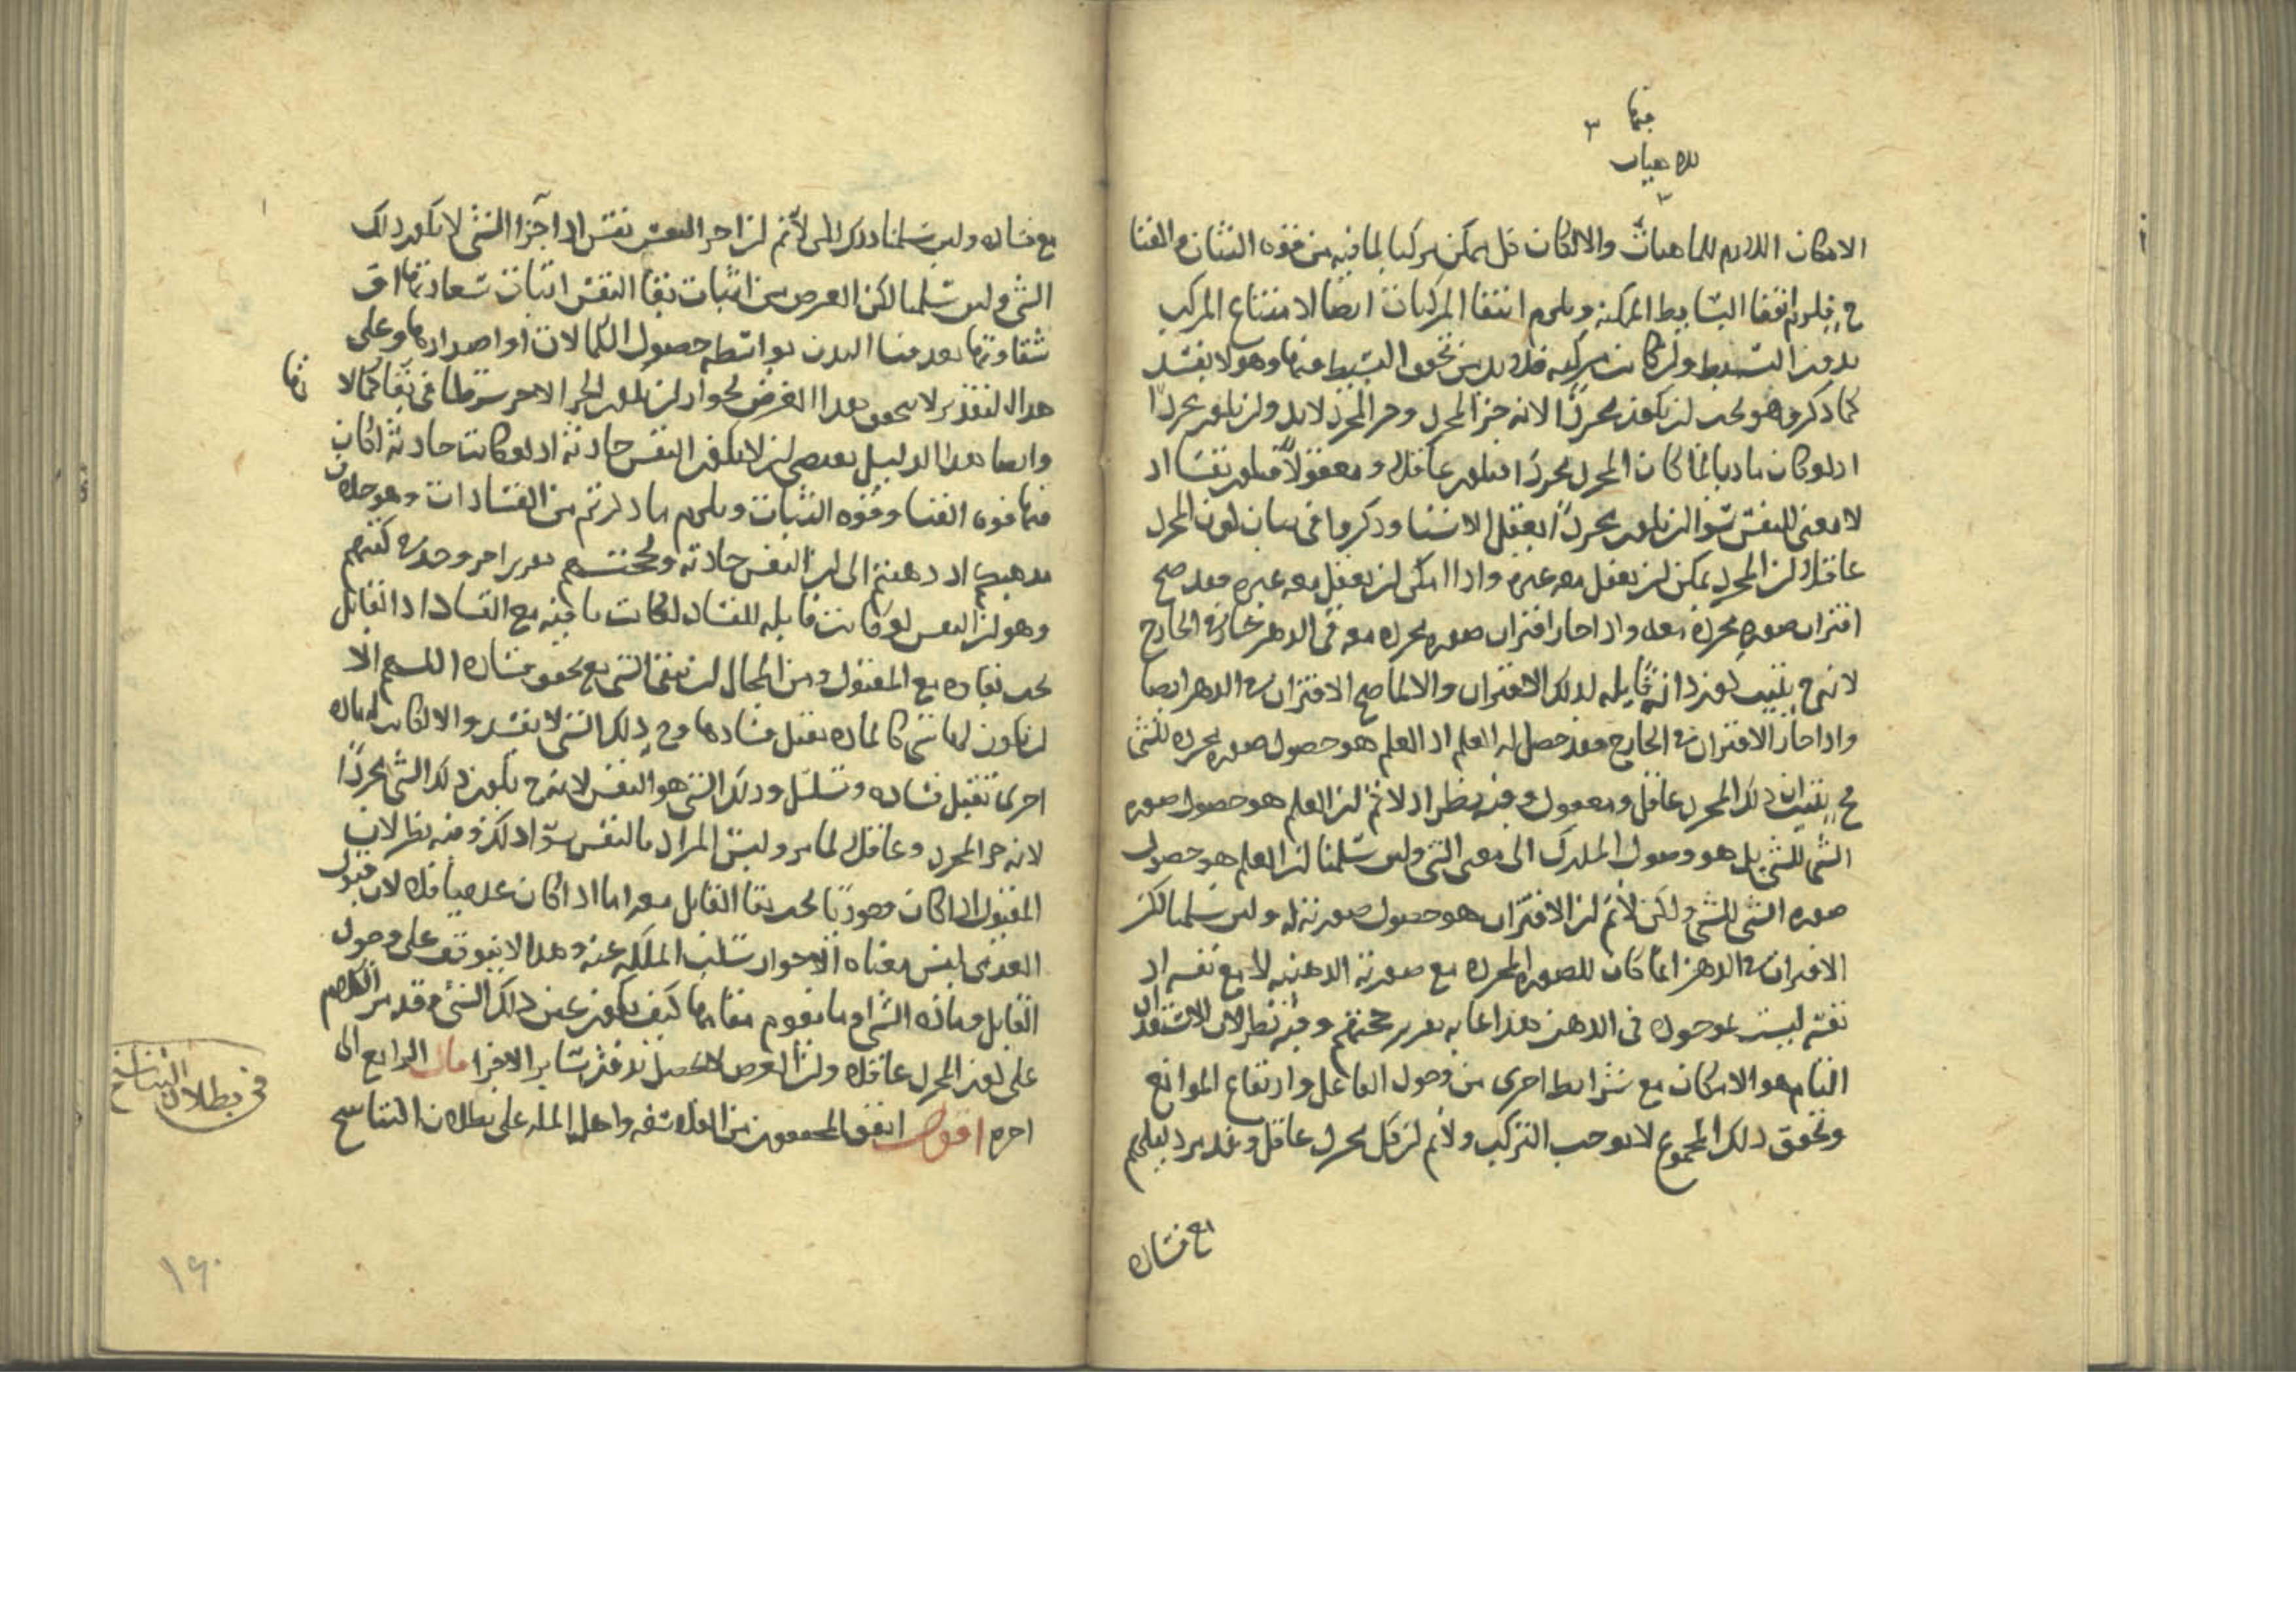 فيها ٣
للماهيات
٣
الامكان اللازم للماهيات والا لكان كل ممكن مركبا لما فيه من قوه الثبات والفنا
ح فيلزم انتفا البسايط الممكنه ويلزم انتفا المركبات ايضا لامتناع المركب
بدون البسيط ولن كانت مركبه فلا بد من تحقق البسيط فيها وهو لا يفسد
كما ذكر وهو يجب لن يكون مجردا لانه جزء المجرد وجزء المجرد لا بد ولن يكون مجردا
اذ لو كان ماديا لما كان المجرد مجردا فيكون عاقلا ومعقولا فيكون نفسا اذ
لا معنى للنفس سوى لن يكون مجردا يعقل الاشيا وذكروا فى بيان كون المجرد
عاقلا لن المجرد يمكن لن يعقل مع غيره واذا امكن لن يعقل مع غيره فقد صح
اقتران صوره مجرده معه واذا جاز اقتران صوره مجرده معه فى الذهن جاز فى الخارج
لانه ح يثبت كون ذاته قابله لذلك الاقتران والا لما صح الاقتران فى الذهن ايضا
واذا جاز الاقتران فى الخارج فقد حصل له العلم اذ العلم هو حصول صوره مجرده للشى
فح يثبت ان ذلك المجرد عاقل ومعقول وفيه نظر اذ لا نم لن العلم هو حصول صوره
الشى للشى بل هو وصول المدرك الى معنى الشى ولئن سلمنا لن العلم هو حصول
صوره الشى للشى ولكن لا نم لن الاقتران هو حصول صورته له ولئن سلمنا لكن
الاقتران فى الذهن انما كان للصوره المجرده مع صورته الذهنيه لا مع نفسه اذ
نفسه ليست بموجوده فى الذهن هذا غايه تقرير حجتهم وفيه نظر لان الاستعداد
التام هو الامكان مع شرايط اخرى من وجود الفاعل وارتفاع الموانع
وتحقق ذلك المجموع لا يوجب التركيب ولا نم لن كل مجرد عاقل وقد مر دليلهم
مع فساده
مع فساده ولئن سلمنا ذلك لكن لا نم لن جزء النفس نفس اذ اجزا الشى لا يكون ذلك
الشى ولئن سلمنا لكن الغرض من اثبات بقا النفس اثبات سعادتها او
شقاوتها بعد فنا البدن بواسطه حصول الكمالات او اضدادها وعلى
هذا التقدير لا يتحقق هذا الغرض لجواز لن يكون الجزء الاخر شرطا فى بقا كمالا
تها
وايضا هذا الدليل يقتضى لن لا يكون النفس حادثه اذ لو كانت حادثه لكان
فيها قوه الفنا وقوه الثبات ويلزم ما ذكرتم من الفسادات وهو خلاف
مذهبكم اذ ذهبتم الى لن النفس حادثه ولحجتهم تقرير اخر وجد فى كتبهم
وهو لن النفس لو كانت قابله للفساد لكانت باقيه مع الفساد اذ القابل
يجب بقاوه مع المقبول ومن المحال لن يبقى الشى مع تحقق فساده اللهم الا
لن يكون لها شى كالماده يقبل فسادها وح ذلك الشى لا يفسد والا لكانت له ماده
اخرى تقبل فساده وتسلسل وذلك الشى هو النفس لانه ح يكون ذلك الشى مجردا
لانه جزء المجرد وعاقلا لما مر وليس المراد بالنفس سوى ذلك وفيه نظر لان
المقبول اذا كان وجوديا يجب بقا القابل معه اما اذا كان عدميا فلا لان قبول
العدمى ليس معناه الا جواز سلب الملكه عنه وهذا لا يتوقف على وجود
القابل وماده الشى او ما يقوم مقامها كيف يكون عين ذلك الشى وقد مر الكلام
على كون المجرد عاقلا ولن الغرض لا يحصل بدون ساير الاجزا قال الرابع الى
اخره اقول اتفق المحققون من الفلاسفه واهل المله على بطلان التناسخ
فى بطلان التناسخ
١٦٠